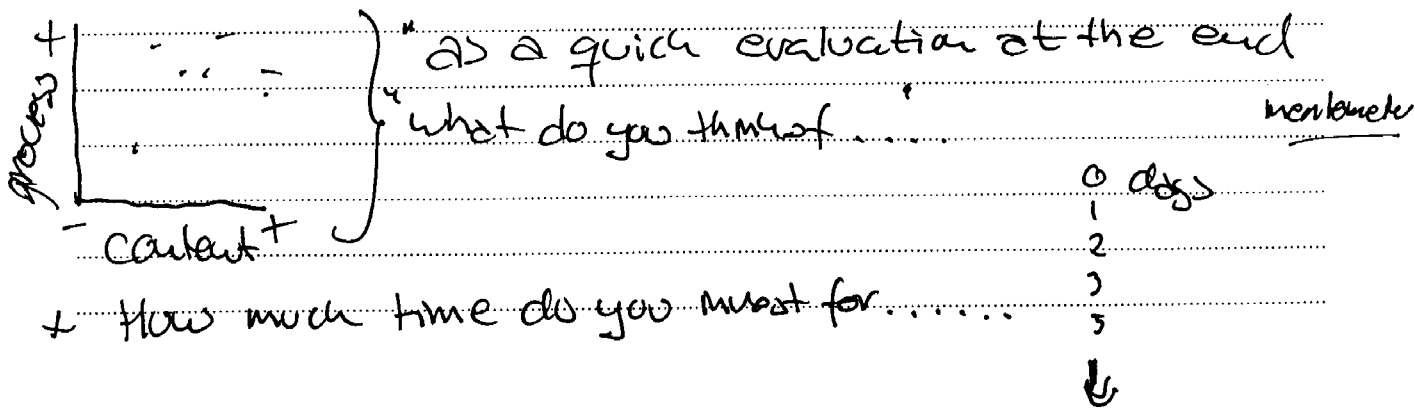 +
process
- content +
" as a quick evaluation at the end
" what do you think of ..... "
mentometer
0 days
1
2
3
5
+ How much time do you invest for ......